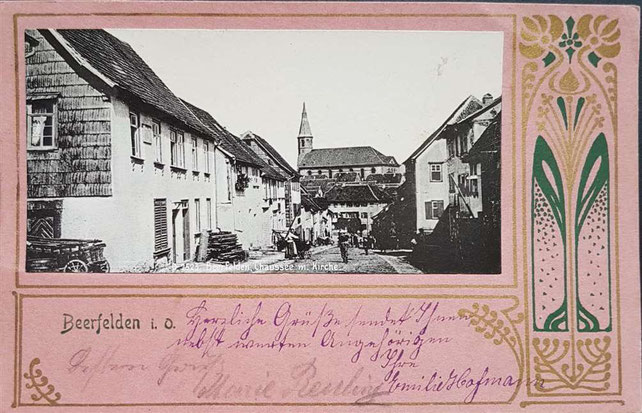 Beerfelden, Chaussee m. Kirche.
Beerfelden i. O.
Herzliche Grüße sendet Ihnen
nebst werten Angehörigen
Ihre
Emilie Hofmann
Marie